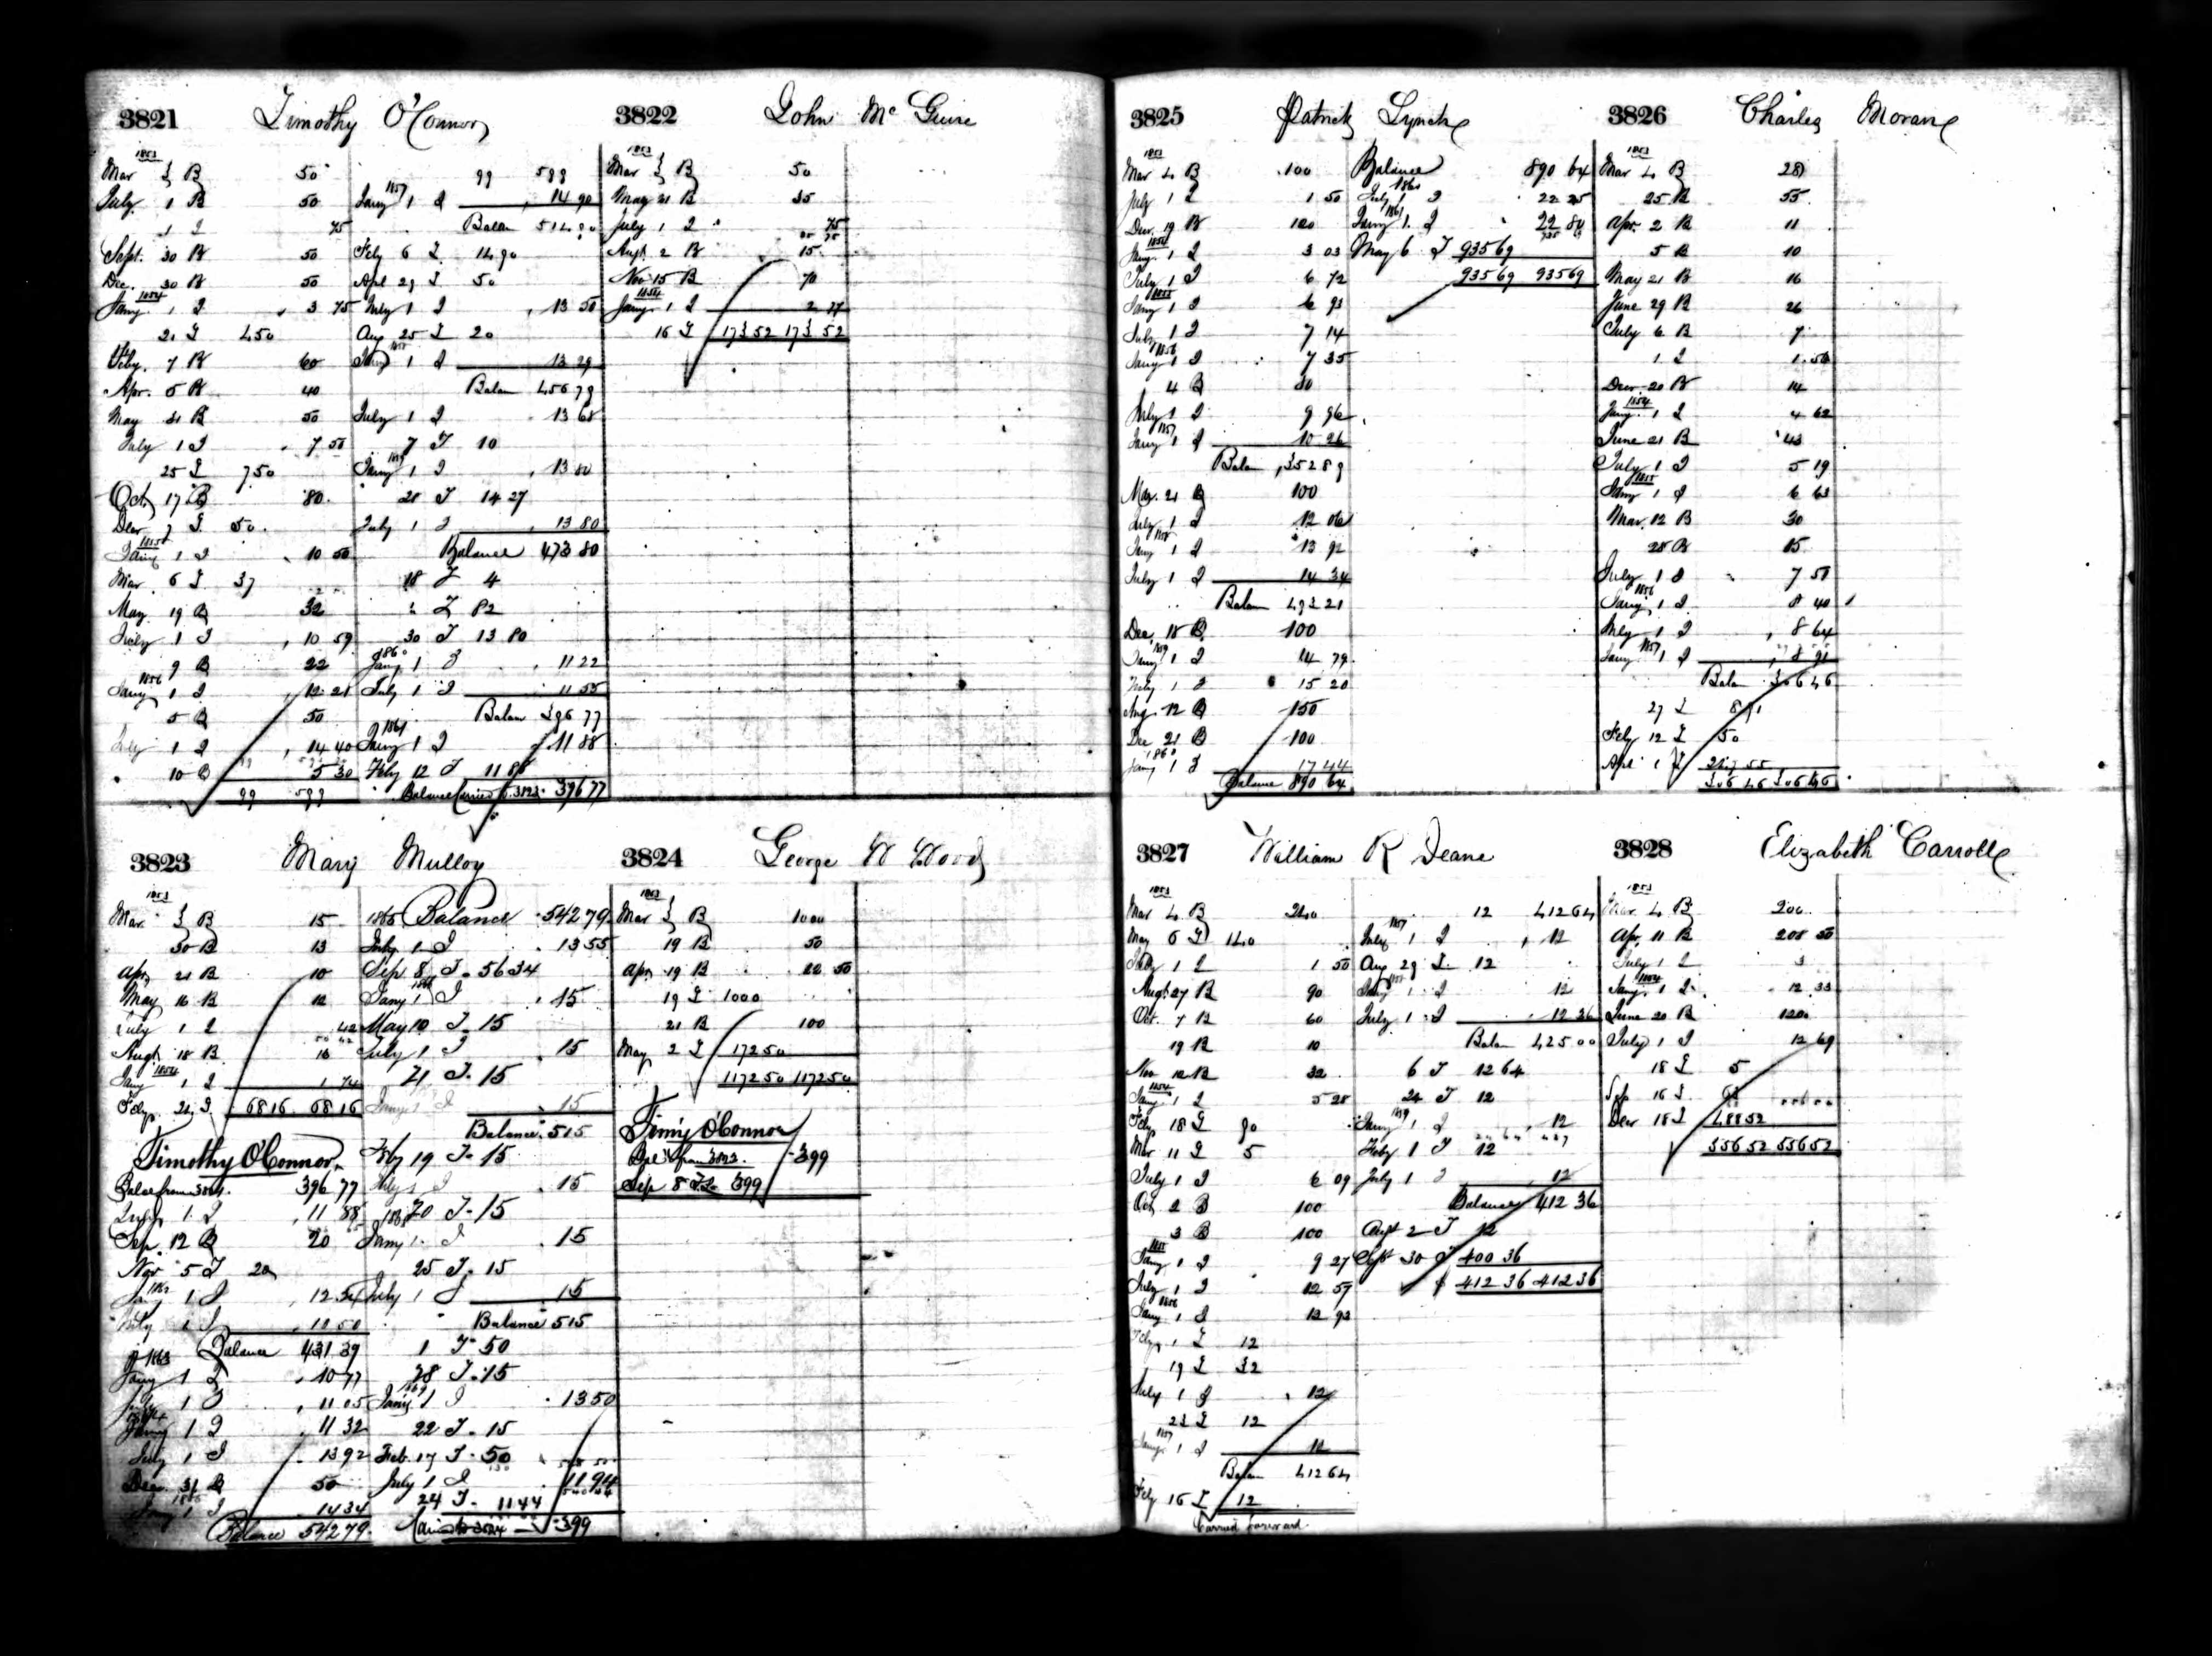 3821 Timothy O'Connor
1853
Mar 3 B 50
July 1 B 50
1 I 75
Sept. 30 B 50
Dec. 30 B 50
1854
Jany. 1 I 3 75
21 I 4 50
Feby. 7 B 60
Apr. 5 B 40
May 31 B 50
July 1 I 7 50
25 I 7 50
Oct 17 B 80
Decr 7 I 50
1855
Jany 1 I 10 50
Mar. 6 I 37
May 19 B 32
July 1 I 10 59
9 B 22
1856
Jany 1 I 12 21
5 B 50
July 1 I 14 40
10 B 5 30
99 599
99 599
1857
Jany 1 I 14 90
Balan 514 90
Feby 6 I 14 90
Apl 29 I 50
July 1 I 13 50
Aug 25 I 20
1858
Jany 1 I 13 29
Balan 456 79
July 1 I 13 68
7 I 10
1859
Jany 1 I 13 80
28 I 14 27
July 1 I 13 80
Balance 473 80
18 I 4
" I 82
30 I 13 80
1860
Jany 1 I 11 22
July 1 I 11 55
Balan 396 77
1861
Jany 1 I 11 88
Feby 12 I 11 88
Balance Carried to 3823 396 77
3822 John McGuire
1853
Mar 3 B 50
May 21 B 35
July 1 I 75
Augt. 2 B 15
Nov 15 B 70
1854
Jany. 1 I 2 77
16 I 173 52 173 52
3823 Mary Mulloy
1853
Mar. 3 B 15
30 B 13
Apr. 21 B 10
May 16 B 12
July 1 I 42
Augt. 18 B 16
1854
Jany 1 I 1 74
Feby. 21 I 68 16 68 16
Timothy O'Connor
Balce from 3821. 396 77
July 1 I 11 88
Sep. 12 B 20
Nov 5 I 20
Jany 1 I
July 1 I
Balance 431 39
1863
Jany 1 I 10 77
July 1 I 11 05
Jany 1 I 11 32
July 1 I 13 92
Decr. 31 B 50
1865
Jany 1 I 14 34
Balance 542 79
1865 Balance 542 79
July 1 I 13 55
Sep 8 I 56 34
1866
Jany 1 I 15
May 10 I 15
July 1 I 15
21 I 15
Jany 1 I 15
Balance 515
Feby 19 I 15
July 1 I 15
20 I 15
1868
Jany 1 I 15
25 I 15
July 1 I 15
Balance 515
1 I 50
28 I 15
1869
Jany 1 I 13 50
22 I 15
Feb. 17 I 50
July 1 I 11 94
24 I 11 44
Carried to 3824 399
3824 George W Wood
1853
Mar 3 B 1000
19 B 50
Apr. 19 B 22 50
19 I 1000
21 B 100
May 2 I 172 50
1172 50 1172 50
Timy O'Connor
Bal from 3823. 399
Sep 8 I 399
3825 Patrick Lynch
1853
Mar 4 B 100
July 1 I 1 50
Decr. 19 B 100
1854
Jany. 1 I 3 03
July 1 I 6 72
1855
Jany 1 I 6 93
July 1 I 7 14
1856
Jany 1 I 7 35
4 B 80
July 1 I 9 96
1857
Jany 1 I 10 26
Balan 352 89
Mar. 21 B 100
July 1 I 12 06
1858
Jany 1 I 13 92
July 1 I 14 34
Balan 493 21
Dec. 18 B 100
1859
Jany 1 I 14 79
July 1 I 15 20
Aug. 12 B 150
Dec 21 B 100
1860
Jany 1 I 17 44
Balance 890 64
Balance 890 64
1860
July 1 I 22 25
1861
Jany 1 I 22 80
May 6 I 935 69
935 69 935 69
3826 Charles Moran
1853
Mar 4 B 28
25 B 55
Apr. 2 B 11
5 B 10
May 21 B 16
June 29 B 26
July 6 B 7
1 I 1 50
Decr 20 B 14
1854
Jany. 1 I 4 62
June 21 B 43
July 1 I 5 19
1855
Jany 1 I 6 63
Mar. 12 B 30
28 B 15
July 1 I 7 50
1856
Jany 1 I 8 40
July 1 I 8 64
1857
Jany 1 I 8 91
Balan 306 46
27 I 8 91
Feby 12 I 50
Apl 1 I 247 55
306 46 306 46
3827 William R Deane
1853
Mar 4 B 240
May 6 I 140
July 1 I 1 50
Augt. 27 B 90
Oct. 7 B 60
19 B 10
Nov 12 B 32
1854
Jany. 1 I 5 28
Feby. 18 I 90
Mar 11 I 5
July 1 I 6 09
Oct 2 B 100
3 B 100
1855
Jany 1 I 9 27
July 1 I 12 57
1856
Jany 1 I 12 93
Feby 1 I 12
19 I 32
July 1 I 12
23 I 12
1857
Jany 1 I 12
Balan 412 64
Feby 16 I 12
Carried forward.
12 412 64
1857
July 1 I 12
Aug 29 I 12
1858
Jany 1 I 12
July 1 I 12 36
Balan 425 00
6 I 12 64
24 I 12
1859
Jany 1 I 12
Feby 1 I 12
July 1 I 12
Balance 412 36
Augt 2 I 12
Sept 30 I 400 36
412 36 412 36
3828 Elizabeth Carroll
1853
Mar. 4 B 200
Apr. 11 B 208 50
July 1 I 3
1854
Jany. 1 I 12 33
June 20 B 120
July 1 I 12 69
18 I 5
Sep 16 I
Decr 18 I 488 52
556 52 556 52